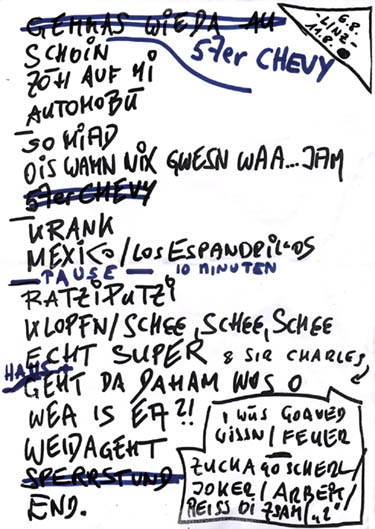 GEMMAS WIEDA AU
57er CHEVY
6.8.
-LINZ-
11.8.
SCHOIN
ZÖH AUF MI
AUTOMOBÜ
SO MIAD
OIS WAHN NIX GWESN WAA...JAM
57er CHEVY
KRANK
MEXICO/LOS ESPANDRILLOS
PAUSE — 10 MINUTEN
RATZIPUTZI
KLOPFN/SCHEE, SCHEE, SCHEE
ECHT SUPER & SIR CHARLES
HANS +
GEHT DA DAHAM WOS O
WEA IS EA?!
WEIDAGEHT
SPERRSTUND
END.
I WÜS
GISSN/FEUER
ZUCKAGOSCHERL/
JOKER/ARBEIT/
REISS DI ZSAM/„2"